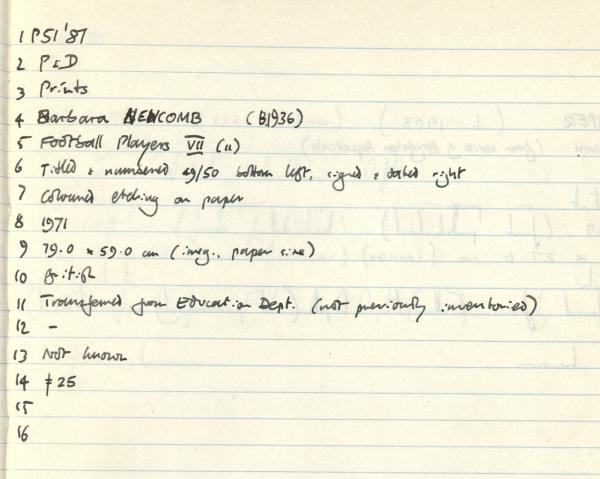 1 P51 '87
2 P & D
3 Prints
4 Barbara NEWCOMB (B1936)
5 Football Players VII (u)
6 Titled & numbered 49/50 bottom left, signed & dated right
7 Coloured etching on paper
8 1971
9 79.0 x 59.0 cm (irreg., paper size)
10 British
11 Transferred from Education Dept. (not previously inventoried)
12 -
13 Not known
14 £25
15
16